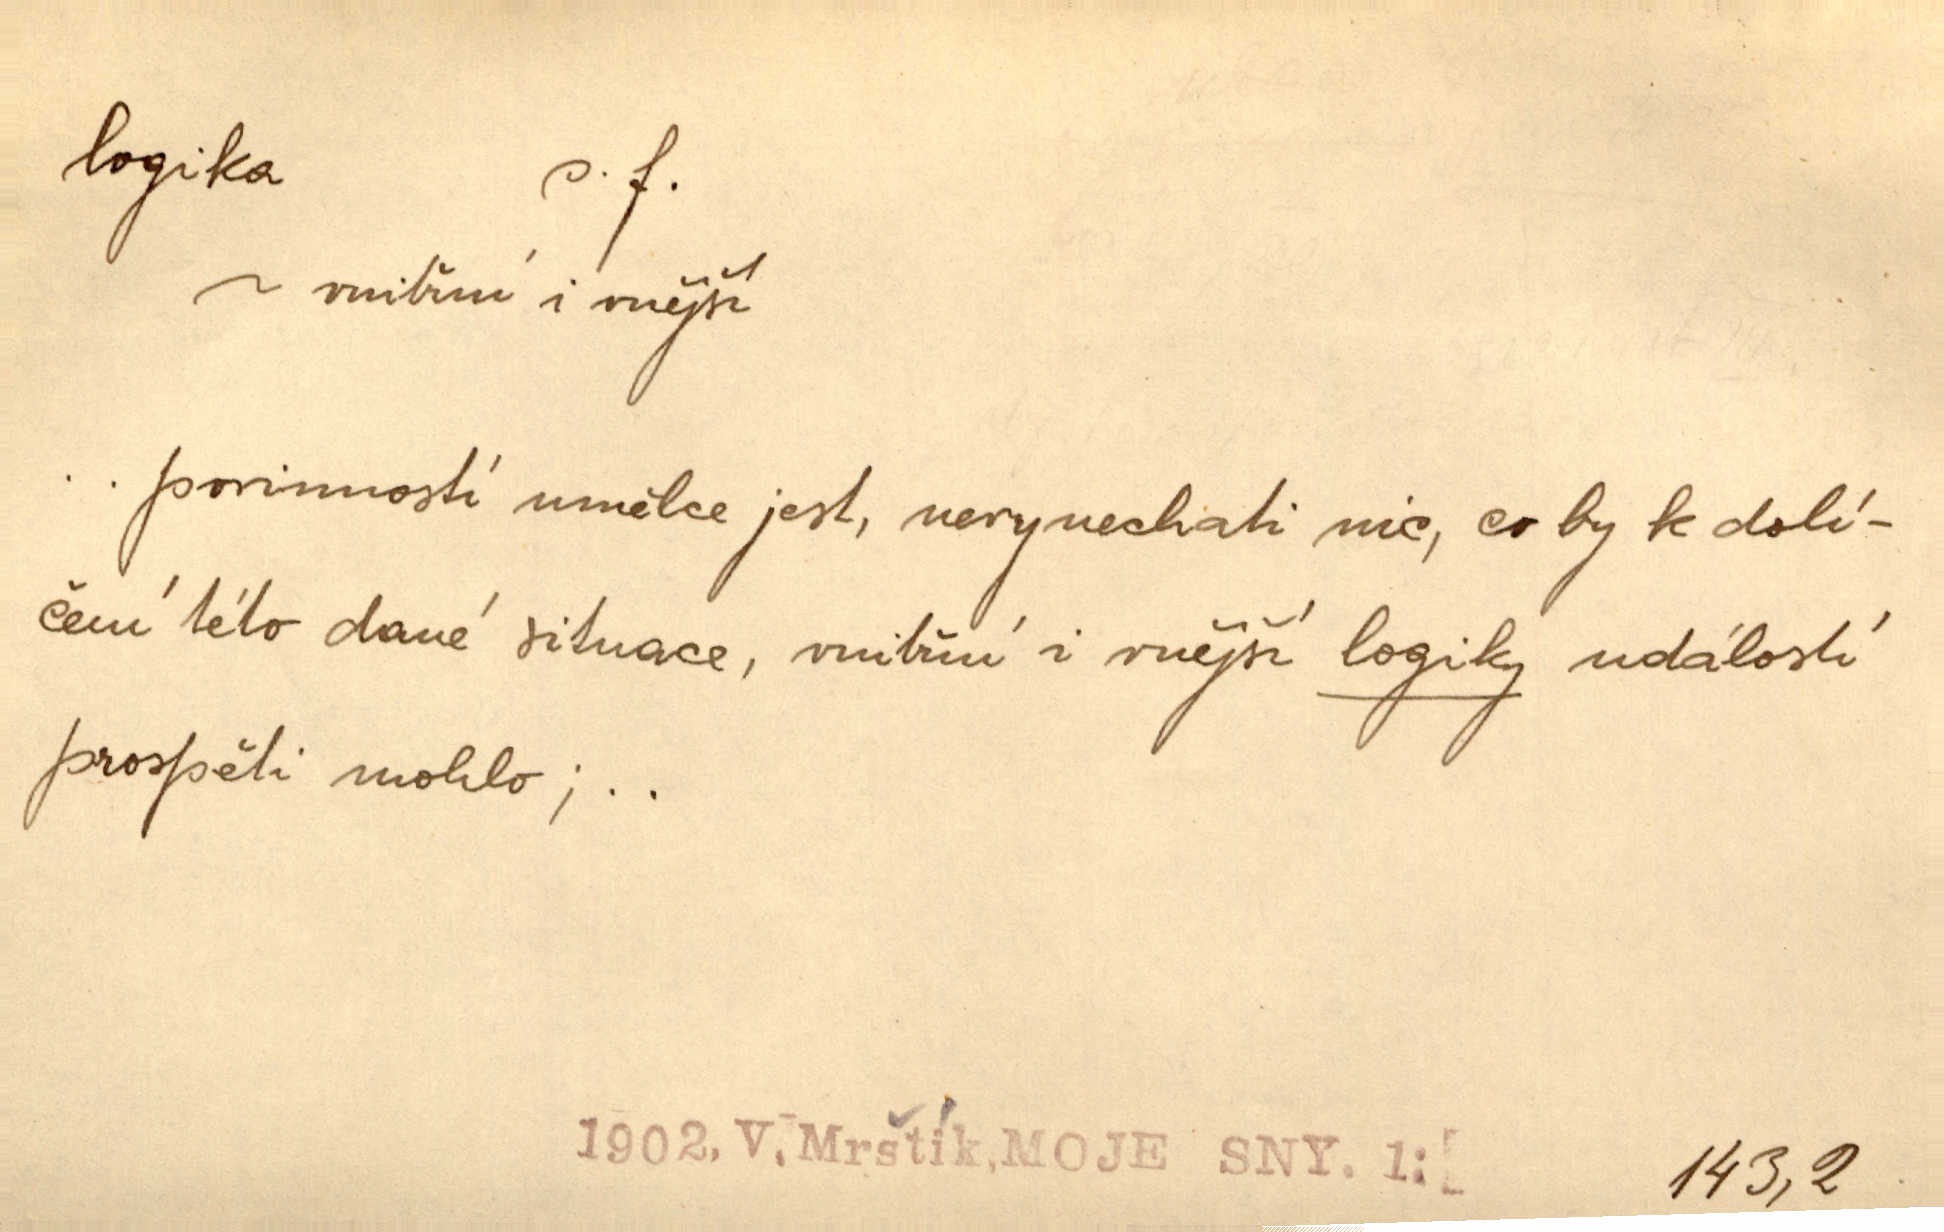 logika s. f.
~ vnitřní i vnější
. . povinností umělce jest, nevynechati nic, co by k dolí-
čení této dané situace, vnitřní i vnější logiky událostí
prospěti mohlo; . .
1902, V. Mrštík, MOJE SNY. 1:
143,2